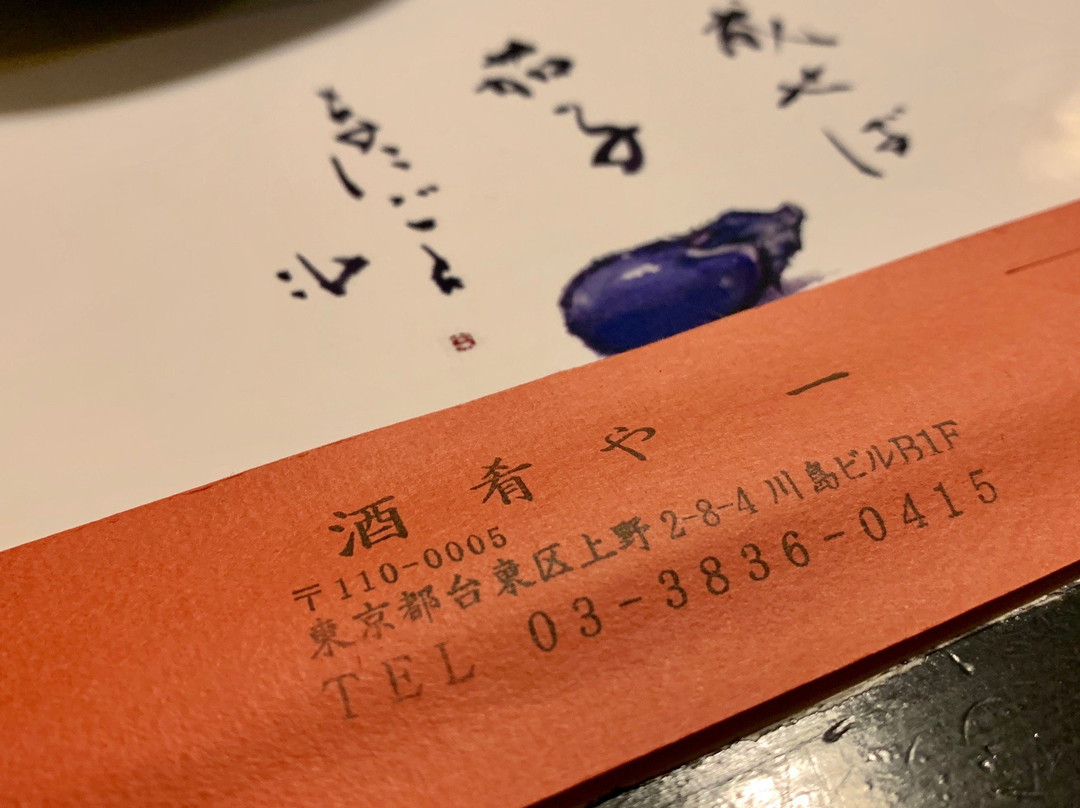 茄子
酒肴や 一
〒110-0005
東京都台東区上野2-8-4川島ビルB1F
TEL 03-3836-0415